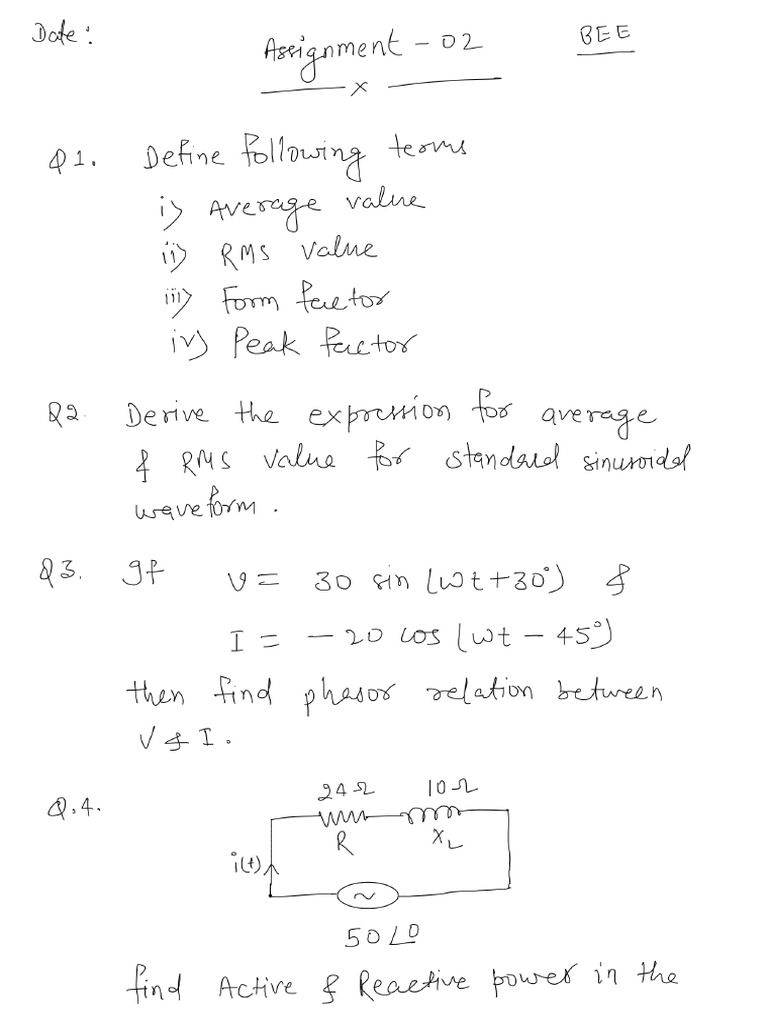 Date:
Assignment - 02
BEE
x
Q1. Define following terms
i) Average value
ii) RMS value
iii) Form factor
iv) Peak factor
Q2. Derive the expression for average
& RMS value for standard sinusoidal
waveform.
Q3. If v = 30 sin (ωt+30°) &
I = - 20 cos (ωt - 45°)
then find phasor relation between
V & I.
Q.4.
24Ω 10Ω
R XL
i(t)
~
50∠0
find Active & Reactive power in the